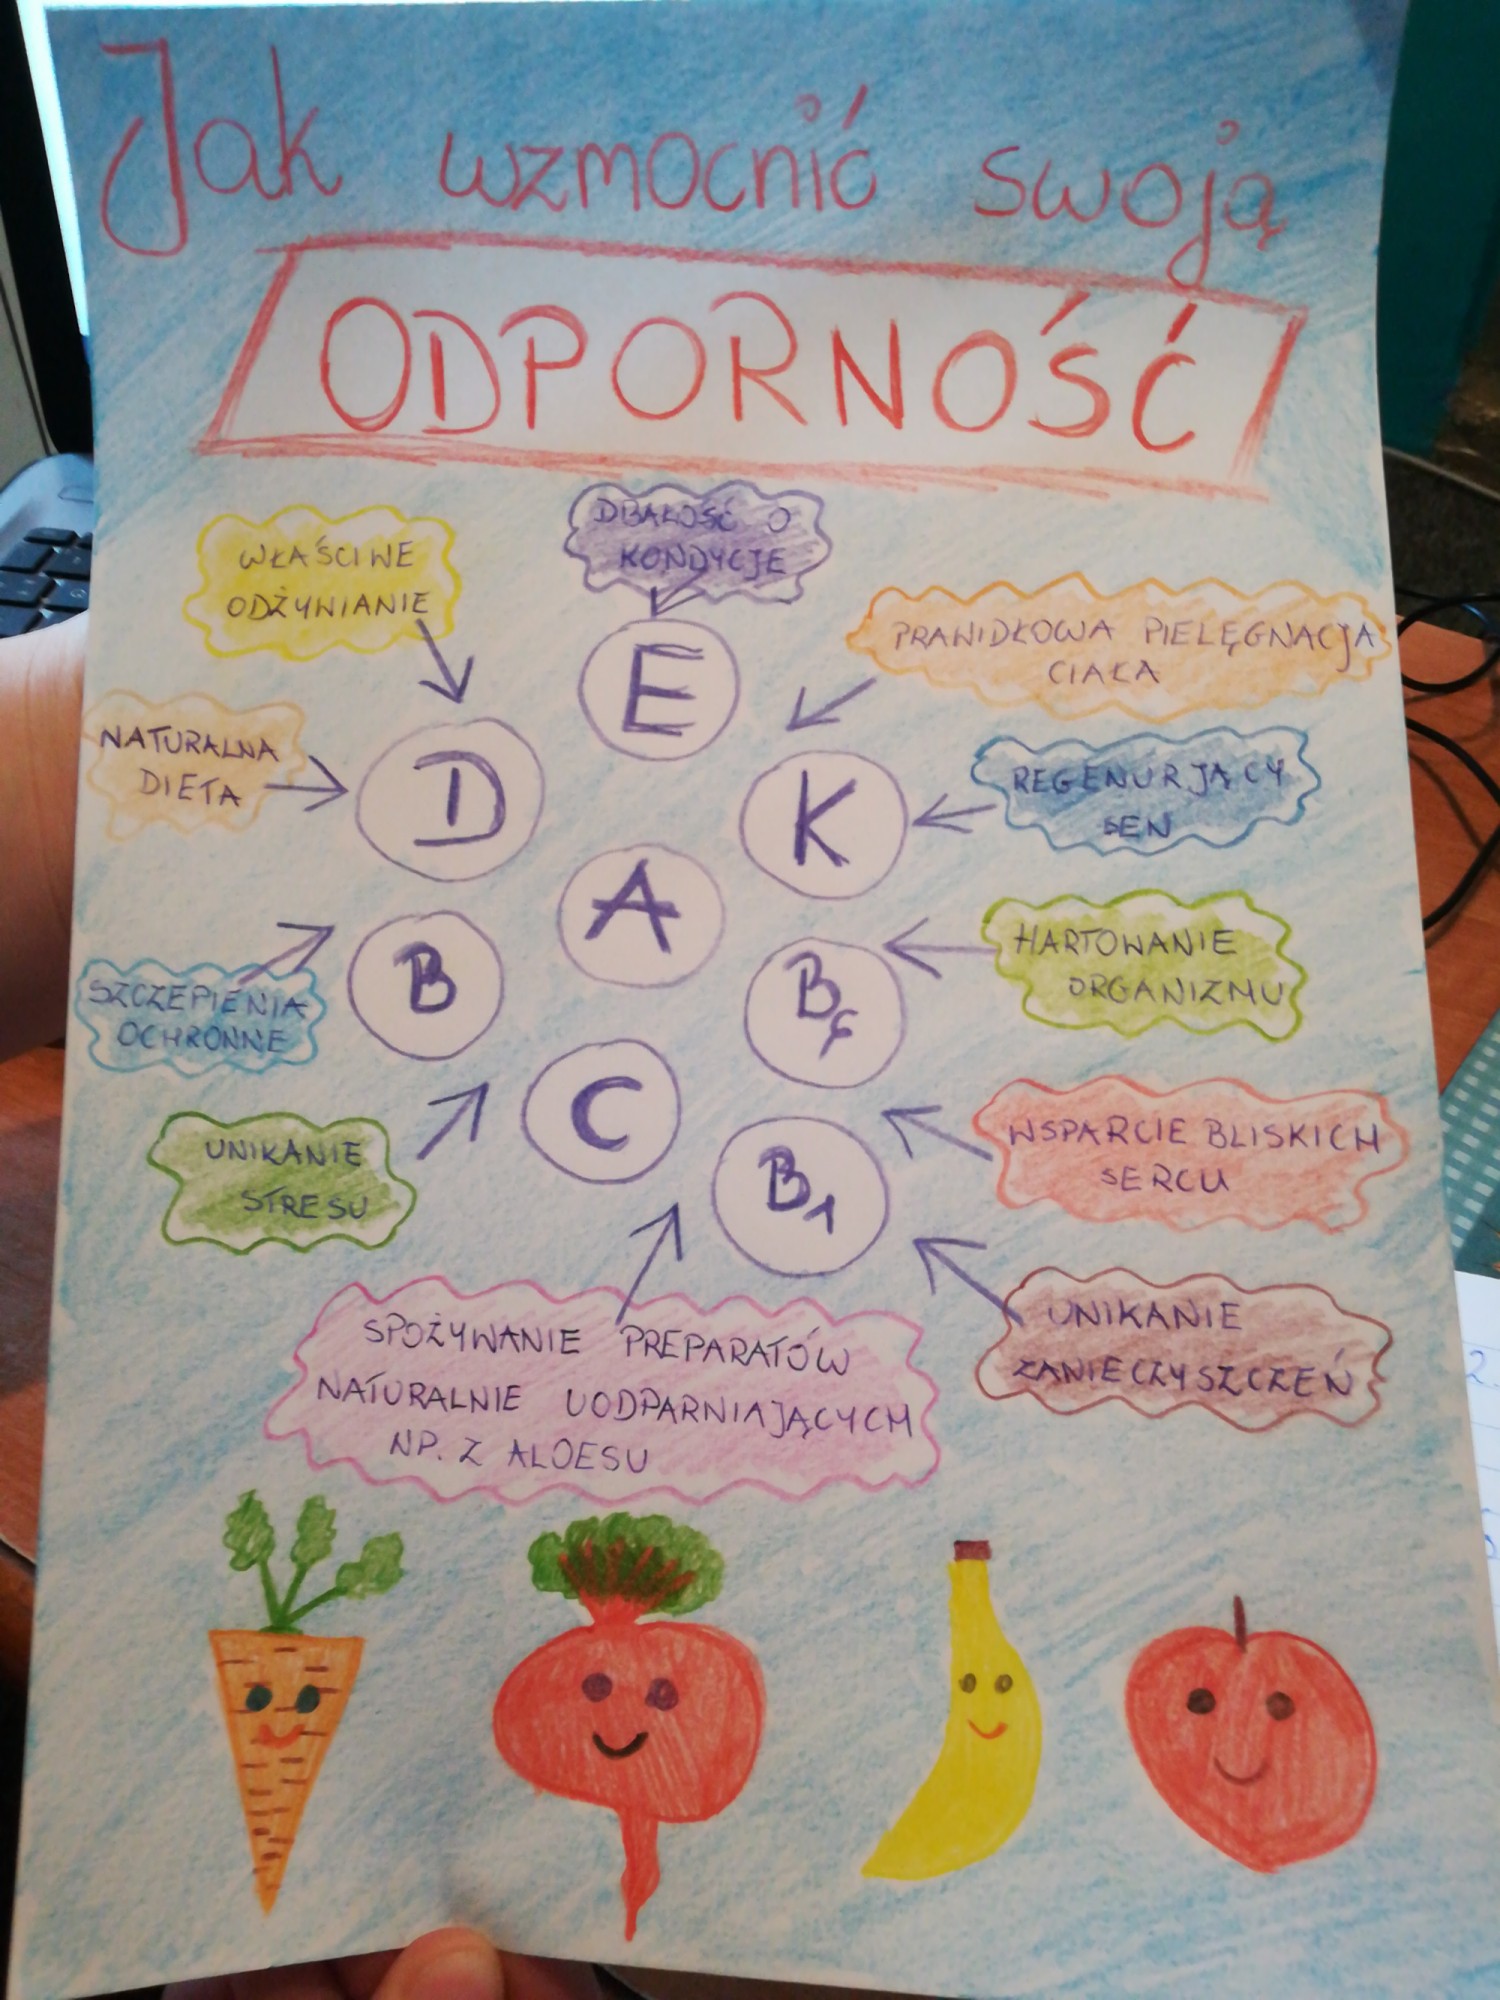 Jak wzmocnić swoją
ODPORNOŚĆ
DBAŁOŚĆ O
KONDYCJE
WŁAŚCIWE
ODŻYWIANIE
PRAWIDŁOWA PIELĘGNACJA
CIAŁA
E
NATURALNA
DIETA
D
K
REGENURJĄCY
SEN
A
SZCZEPIENIA
OCHRONNE
B
B6
HARTOWANIE
ORGANIZMU
UNIKANIE
STRESU
C
B1
WSPARCIE BLISKICH
SERCU
SPOŻYWANIE PREPARATÓW
NATURALNIE UODPARNIAJĄCYCH
NP. Z ALOESU
UNIKANIE
ZANIECZYSZCZEŃ